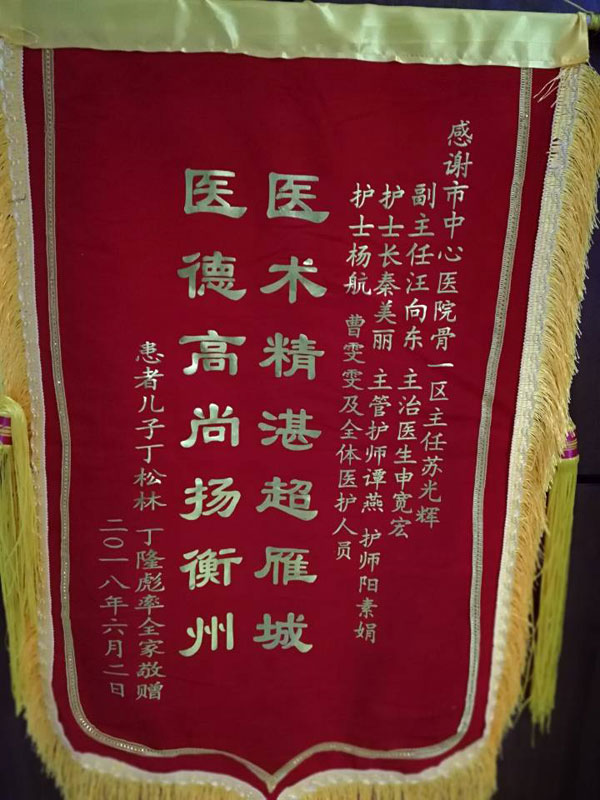 感谢市中心医院骨一区主任苏光辉
副主任汪向东 主治医生申宽宏
护士长秦美丽 主管护师谭燕 护师阳素娟
护士杨航 曹雯雯及全体医护人员
医术精湛超雁城
医德高尚扬衡州
患者儿子丁松林 丁隆彪率全家敬赠
二〇一八年六月二日